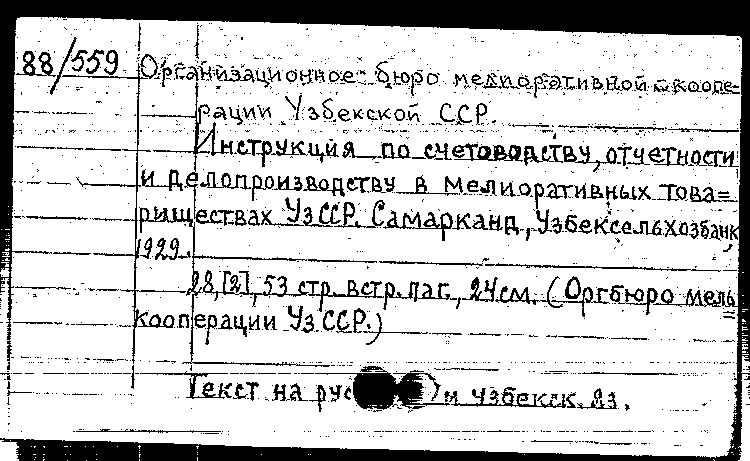 88/559 Организационное бюро мелиоративной коопе-
рации Узбекской ССР.
Инструкция по счетоводству, отчетности
и делопроизводству в мелиоративных това=
риществах УзССР. Самарканд, Узбексельхозбанк,
1929.
28, [2], 53 стр. встр. паг., 24 см. (Оргбюро мель
кооперации УзССР.)
Текст на рус и узбекск. яз.